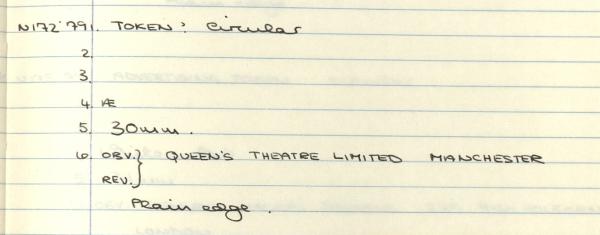 N172'79 1. TOKEN: Circular
2.
3.
4. Æ
5. 30mm.
6. OBV.} QUEEN'S THEATRE LIMITED MANCHESTER
REV.}
Plain edge.